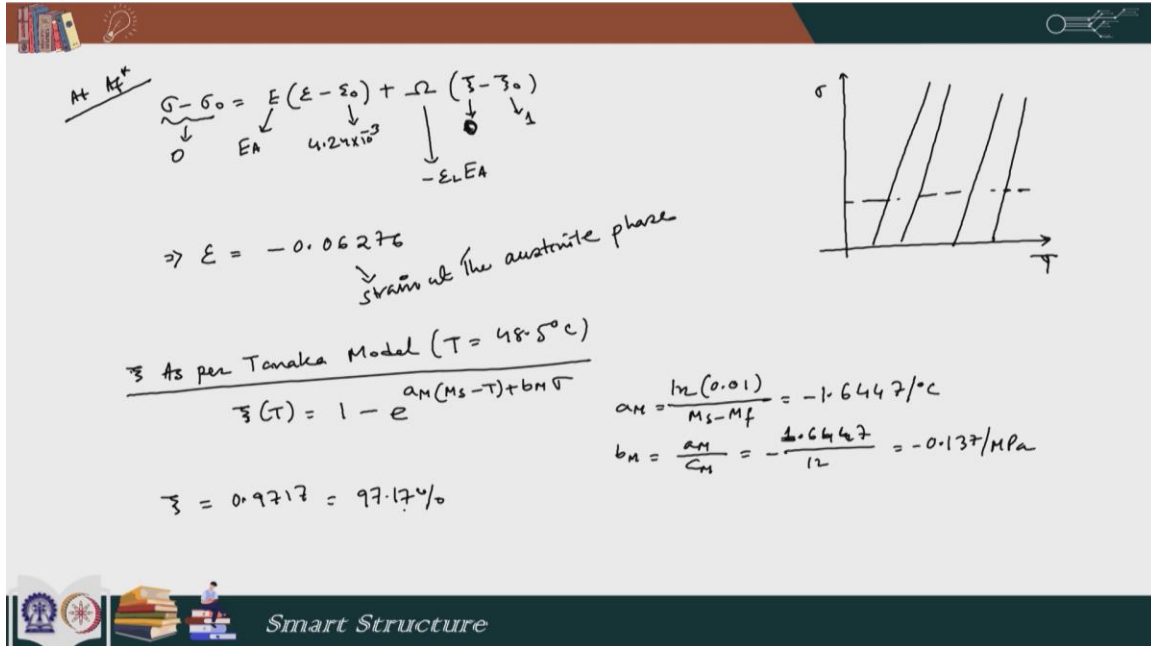 At Af*
σ - σ₀ = E(ε - ε₀) + Ω (ξ - ξ₀)
0
EA
4.24×10⁻³
-εL EA
0
1
⇒ ε = - 0.06276
strain at the austenite phase
ξ As per Tanaka Model (T = 48.5°C)
ξ(T) = 1 - e^(aM(Ms-T)+bMσ)
ξ = 0.9717 = 97.17%
σ
T
aM = ln(0.01) / (Ms-Mf) = -1.6447/°C
bM = aM / CM = - 1.6447 / 12 = -0.137/MPa
Smart Structure